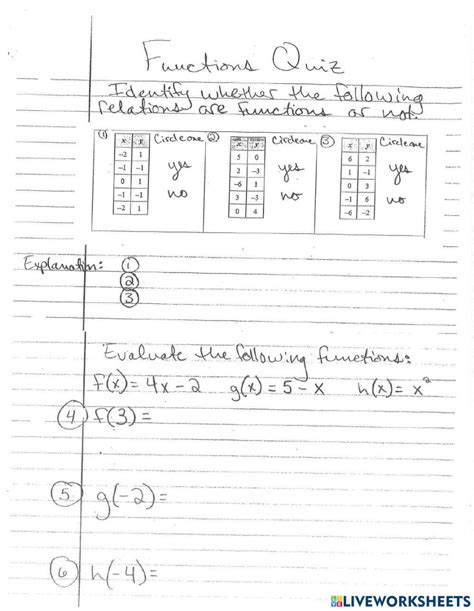 Functions Quiz
Identify whether the following
relations are functions or not.
① Circle one ② Circle one ③ Circle one
x y x y x y
-2 1 5 0 6 2
-1 -1 yes 2 -3 yes 1 -1 yes
0 1 -6 1 0 3
-1 -1 no 3 -3 no -1 6 no
-2 1 0 4 -6 -2
Explanation: ①
②
③
Evaluate the following functions:
f(x) = 4x - 2 g(x) = 5 - x h(x) = x²
④ f(3) =
⑤ g(-2) =
⑥ h(-4) =
LIVEWORKSHEETS